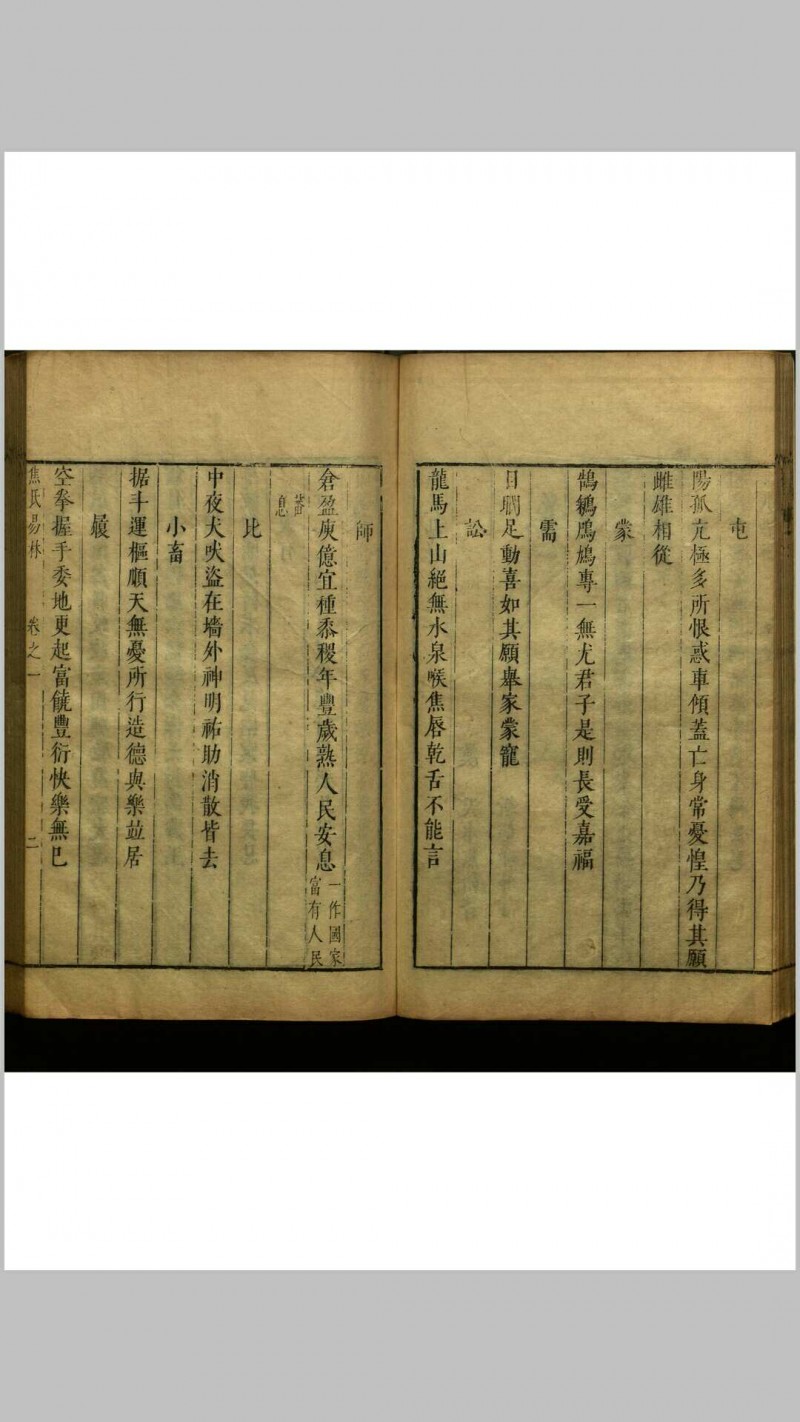 屯
陽孤亢極多所恨惑車傾蓋亡身常憂惶乃得其願
雌雄相從
蒙
鵠鵴鳲鳩專一無尤君子是則長受嘉福
需
目瞤足動喜如其願舉家蒙寵
訟
龍馬上山絕無水泉喉焦唇乾舌不能言
師
倉盈庾億宜種黍稷年豐歲熟人民安息一作國家富有人民
蕃息
比
中夜犬吠盜在墻外神明祐助消散皆去
小畜
据斗運樞順天無憂所行造德與樂並居
履
空拳握手委地更起富饒豐衍快樂無已
焦氏易林 卷之一 二